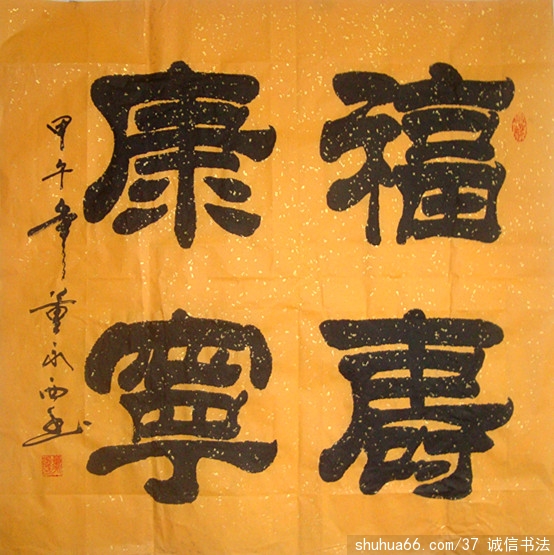 福壽
康寧
甲午年董永西書
shuhua66.com/37 诚信书法